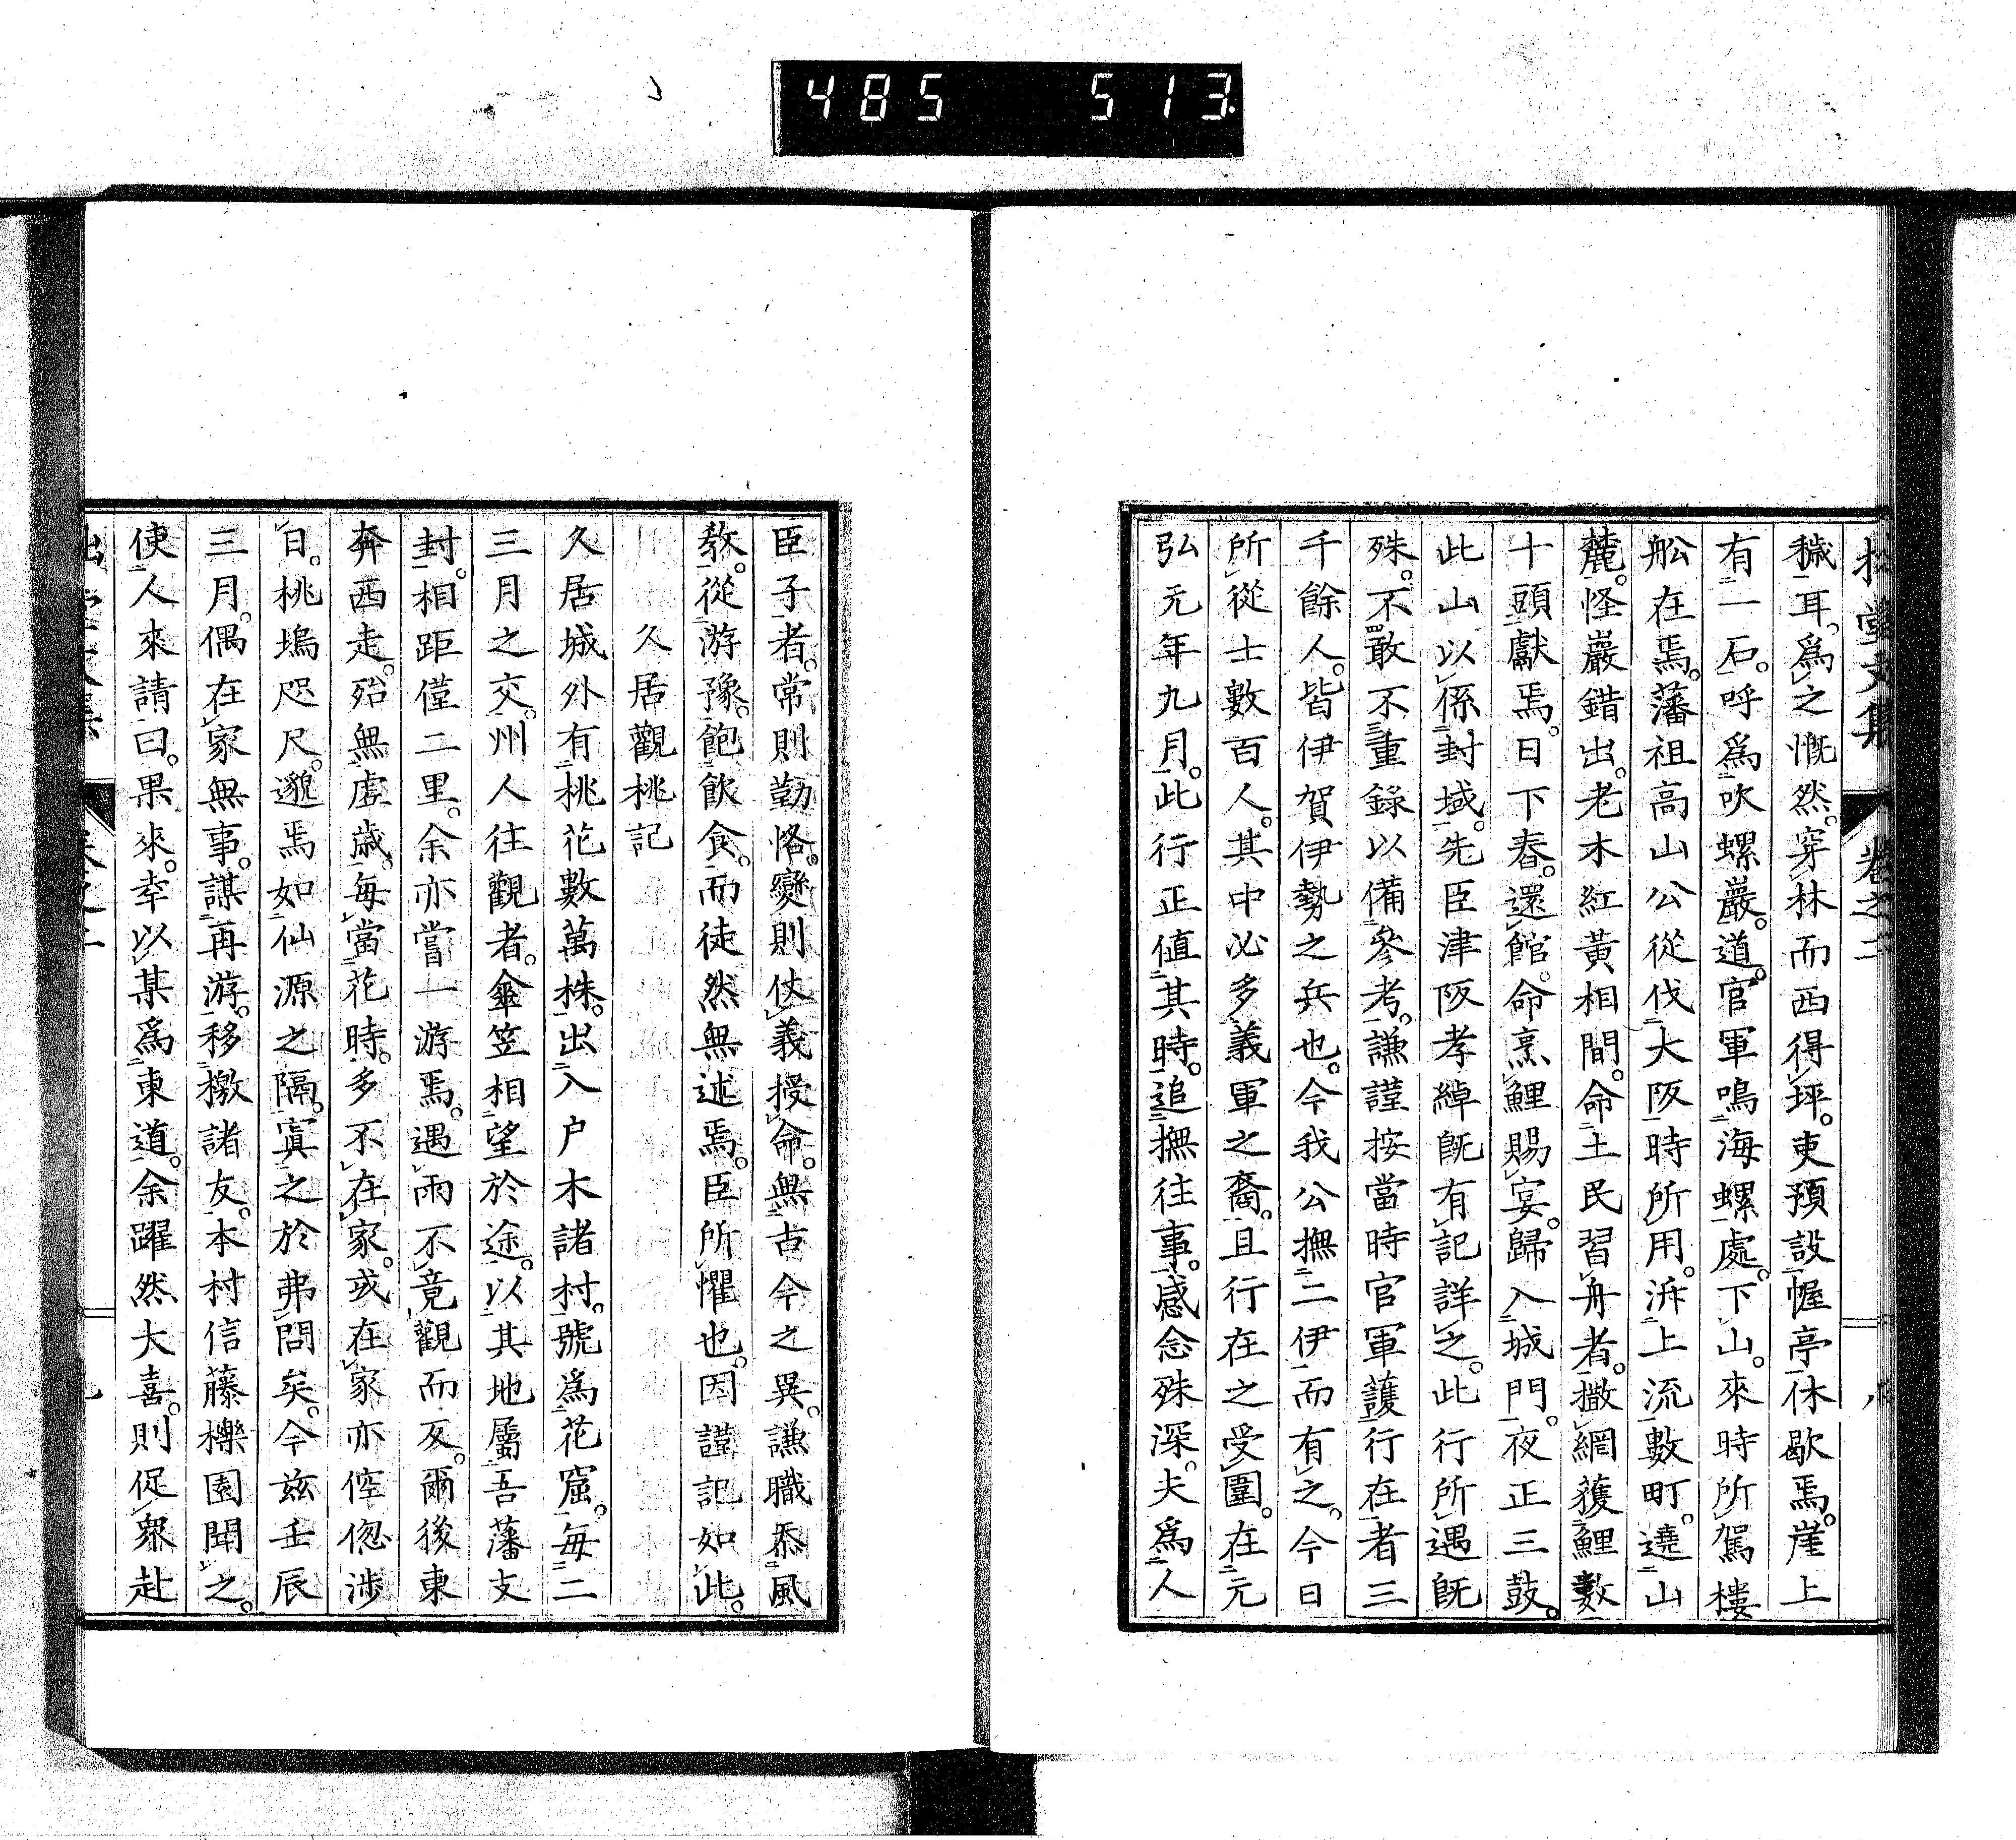 485 513
拙堂文集 卷之二
穢耳。爲之慨然。穿林而西得坪。吏預設幄亭休歇焉。崖上
有一石。呼爲吹螺巖。道。官軍鳴海螺處。下山。來時所駕樓
舩在焉。藩祖高山公從伐大阪時所用。泝上流數町。遶山
麓。怪巖錯出。老木紅黃相間。命土民習舟者。撒網獲鯉數
十頭獻焉。日下舂。還館。命烹鯉賜宴。歸入城門。夜正三鼓。
此山以係封域。先臣津阪孝綽旣有記詳之。此行所遇旣
殊。不敢不重錄以備參考。謙謹按當時官軍護行在者三
千餘人。皆伊賀伊勢之兵也。今我公撫二伊而有之。今日
所從士數百人。其中必多義軍之裔。且行在之受圍。在元
弘元年九月。此行正値其時。追撫往事。感念殊深。夫爲人
臣子者。常則勤恪。變則仗義授命。無古今之異。謙職忝風
敎。從游豫。飽飲食。而徒然無述焉。臣所懼也。因謹記如此。
久居觀桃記
久居城外有桃花數萬株。出入戶木諸村。號爲花窟。每二
三月之交。州人往觀者。傘笠相望於途。以其地屬吾藩支
封。相距僅二里。余亦嘗一游焉。遇雨不竟觀而反。爾後東
奔西走。殆無虛歲。每當花時。多不在家。或在家亦倥偬涉
日。桃塢咫尺。邈焉如仙源之隔。寘之於弗問矣。今玆壬辰
三月。偶在家無事。謀再游。移檄諸友。本村信藤櫟園聞之。
使人來請曰。果來。幸以某爲東道。余躍然大喜。則促衆赴